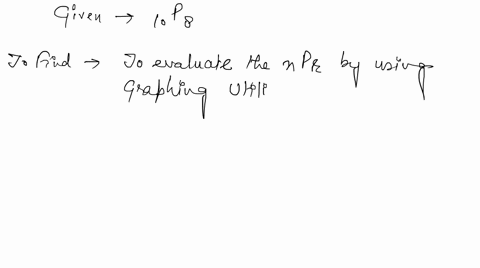 Given → ₁₀P₈
To find → To evaluate the nPr by using
Graphing